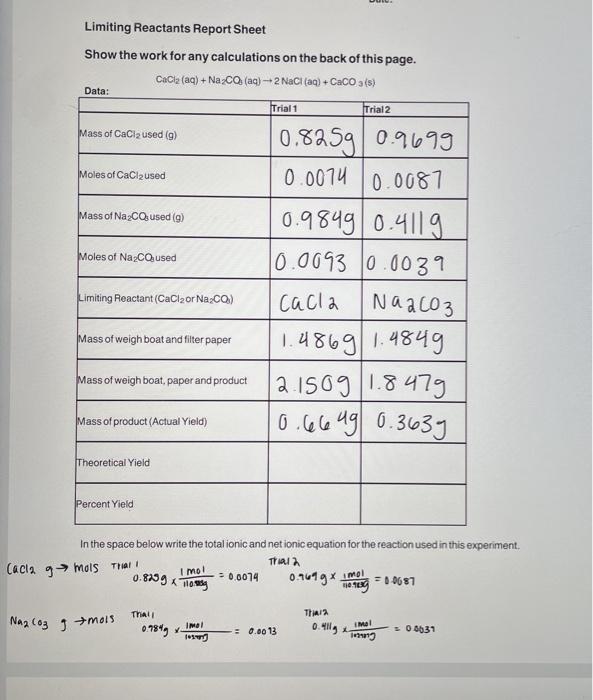 Limiting Reactants Report Sheet
Show the work for any calculations on the back of this page.
CaCl2 (aq) + Na2CO3 (aq) → 2 NaCl (aq) + CaCO3 (s)
Data:
Trial 1 Trial 2
Mass of CaCl2 used (g) 0.825g 0.969g
Moles of CaCl2 used 0.0074 0.0087
Mass of Na2CO3 used (g) 0.984g 0.411g
Moles of Na2CO3 used 0.0093 0.0039
Limiting Reactant (CaCl2 or Na2CO3) CaCl2 Na2CO3
Mass of weigh boat and filter paper 1.486g 1.484g
Mass of weigh boat, paper and product 2.150g 1.847g
Mass of product (Actual Yield) 0.664g 0.363g
Theoretical Yield
Percent Yield
In the space below write the total ionic and net ionic equation for the reaction used in this experiment.
CaCl2 g → mols Trial 1 Trial 2
0.825g x 1 mol = 0.0074 0.969g x 1mol = 0.0087
Na2CO3 g → mols Trial 1 Trial 2
0.984g x 1mol = 0.0093 0.411g x 1mol = 0.0039